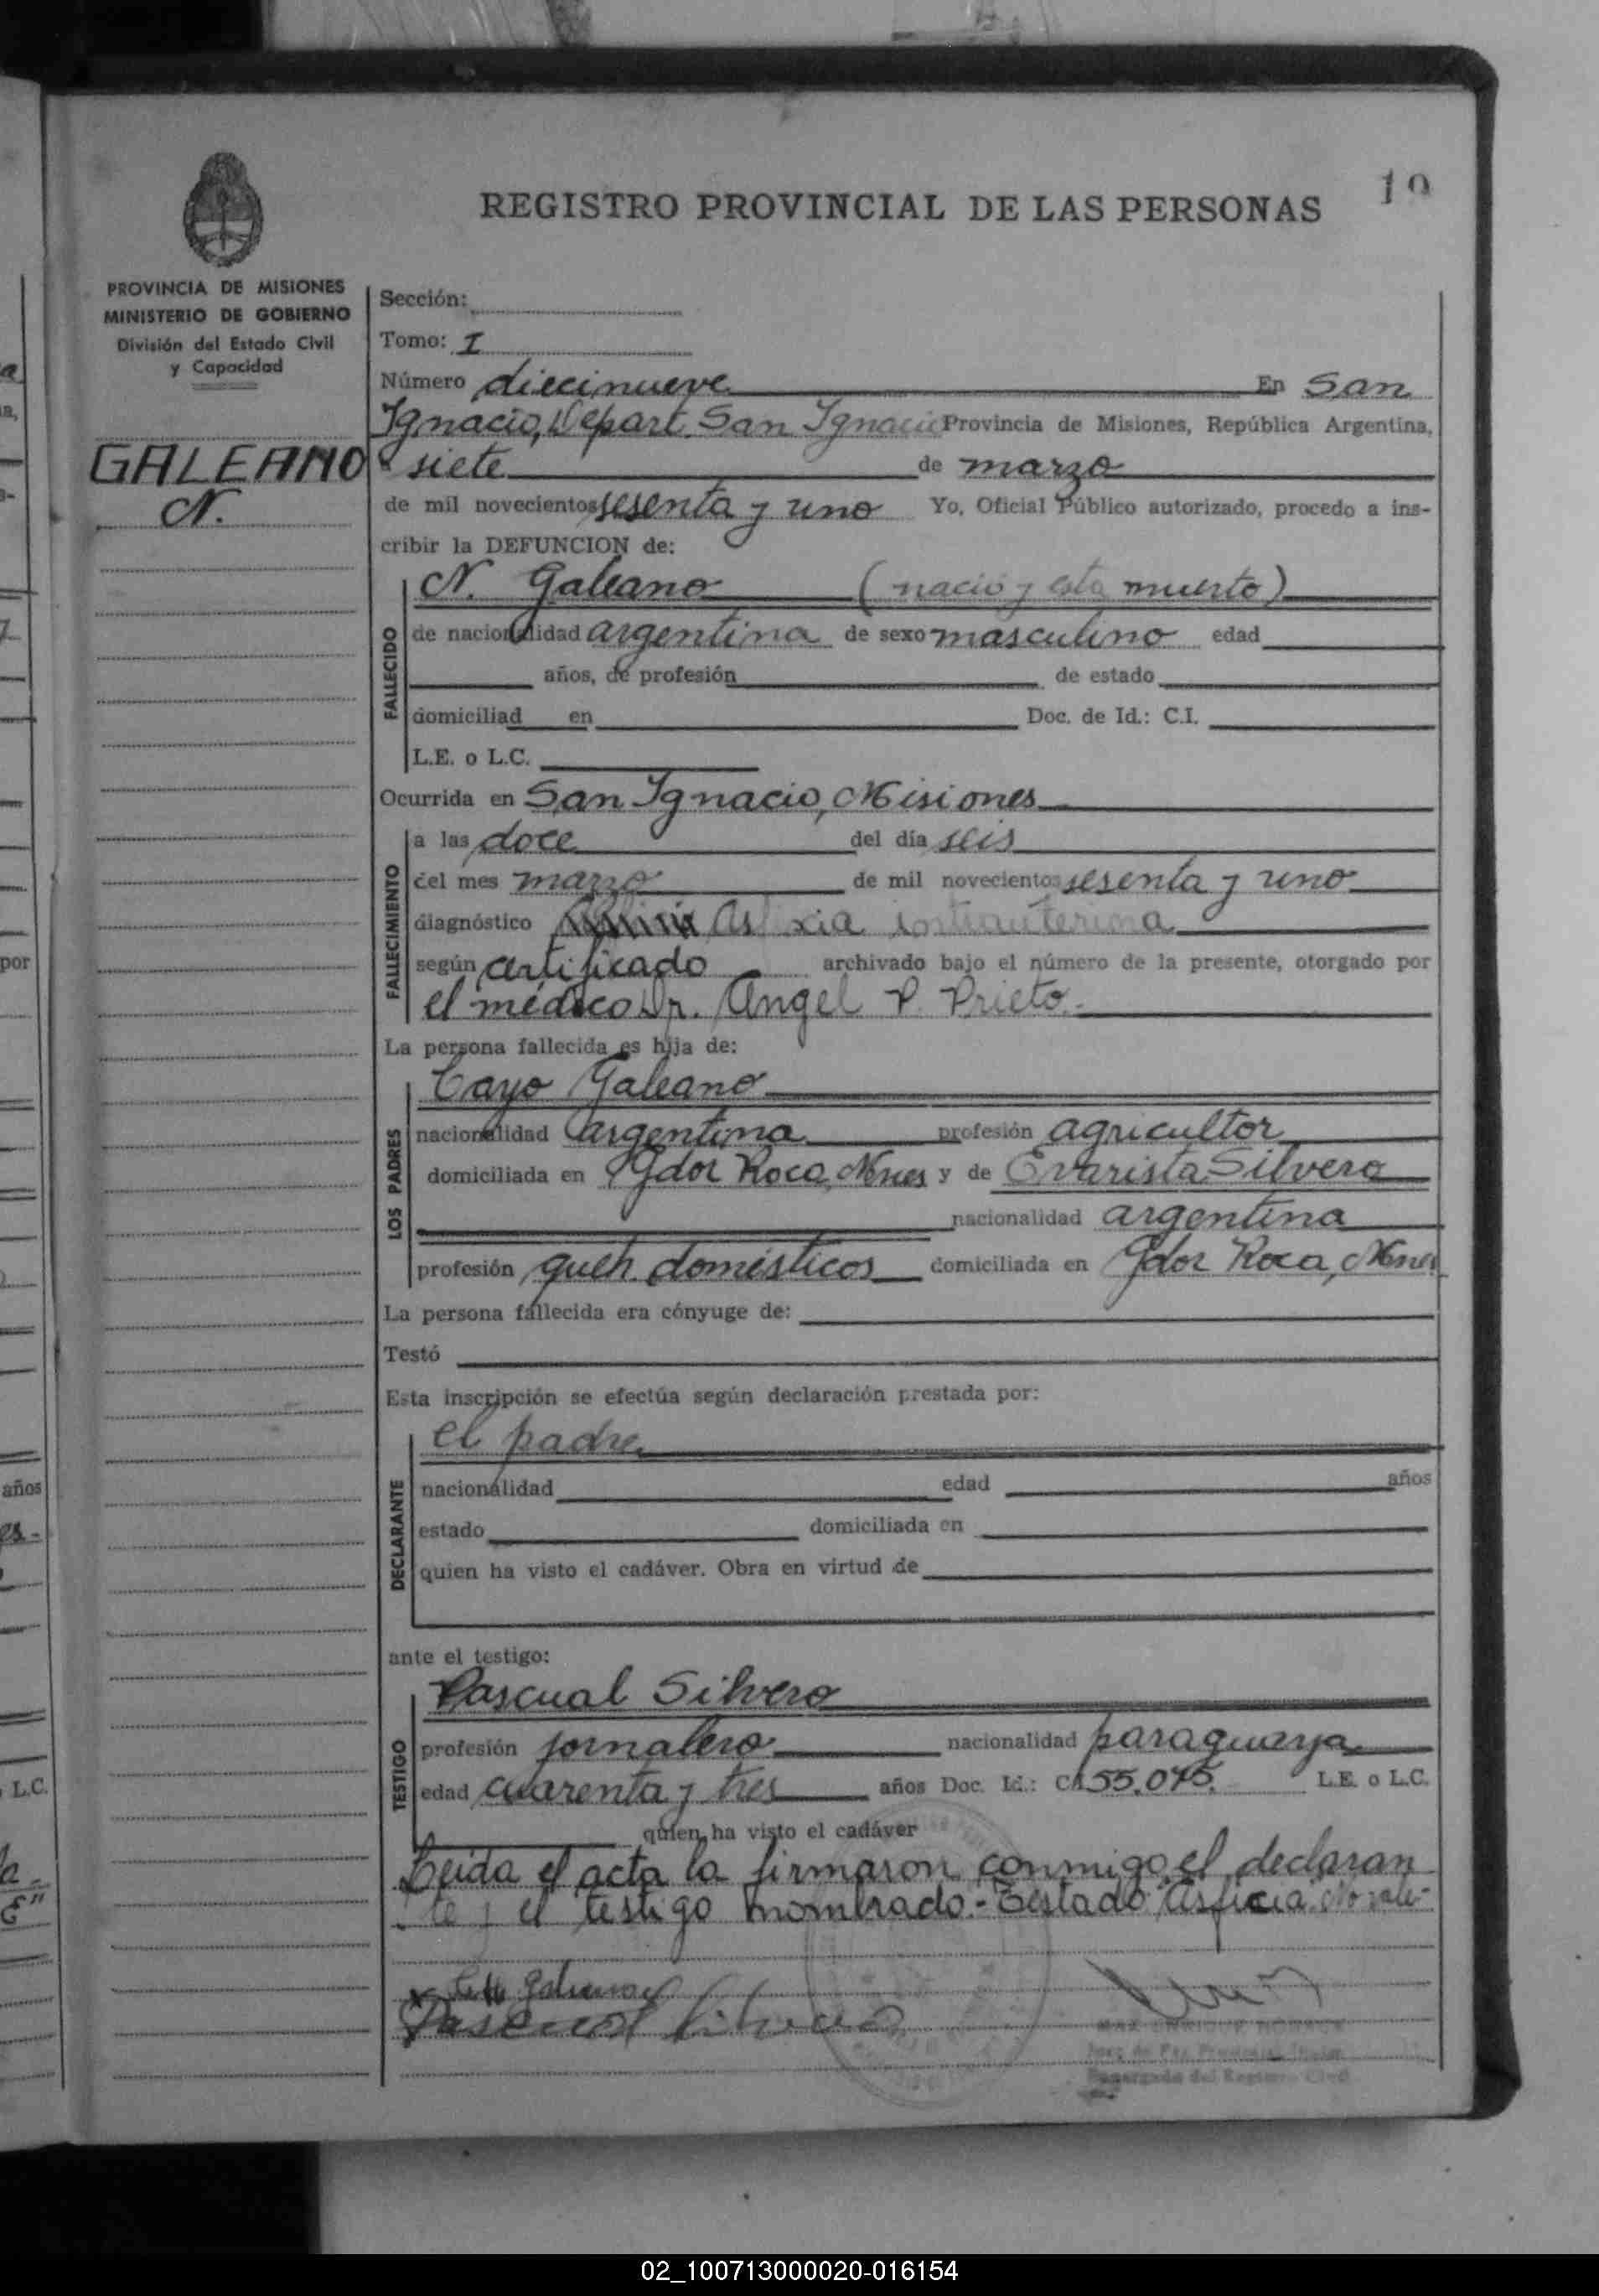 19
REGISTRO PROVINCIAL DE LAS PERSONAS
PROVINCIA DE MISIONES
MINISTERIO DE GOBIERNO
División del Estado Civil
y Capacidad
GALEANO
N.
Sección:
Tomo: I
Número diecinueve En San
Ignacio, Depart. San Ignacio Provincia de Misiones, República Argentina,
a siete de marzo
de mil novecientos sesenta y uno Yo, Oficial Público autorizado, procedo a ins-
cribir la DEFUNCION de:
FALLECIDO
N. Galeano (nació y esta muerto)
de nacionalidad argentina de sexo masculino edad
años, de profesión de estado
domiciliad en Doc. de Id.: C.I.
L.E. o L.C.
Ocurrida en San Ignacio, Misiones
FALLECIMIENTO
a las doce del día seis
del mes marzo de mil novecientos sesenta y uno
diagnóstico Asfixia intrauterina
según certificado archivado bajo el número de la presente, otorgado por
el médico Dr. Angel P. Prieto.
La persona fallecida es hija de:
LOS PADRES
Cayo Galeano
nacionalidad argentina profesión agricultor
domiciliada en Gdor Roca, Mnes y de Evarista Silvero
nacionalidad argentina
profesión queh. domésticos domiciliada en Gdor Roca, Mnes
La persona fallecida era cónyuge de:
Testó
Esta inscripción se efectúa según declaración prestada por:
DECLARANTE
el padre
nacionalidad edad años
estado domiciliada en
quien ha visto el cadáver. Obra en virtud de
ante el testigo:
TESTIGO
Pascual Silvero
profesión jornalero nacionalidad paraguaya
edad cuarenta y tres años Doc. Id.: CI 55.075. L.E. o L.C.
quien ha visto el cadáver
Leida el acta la firmaron conmigo el declaran
te y el testigo nombrado.- Testado: Asficia: No vale-
Galeano
Pascual Silvero
Juez de Paz
Encargado del Registro Civil
años
por
L.C.
02_100713000020-016154